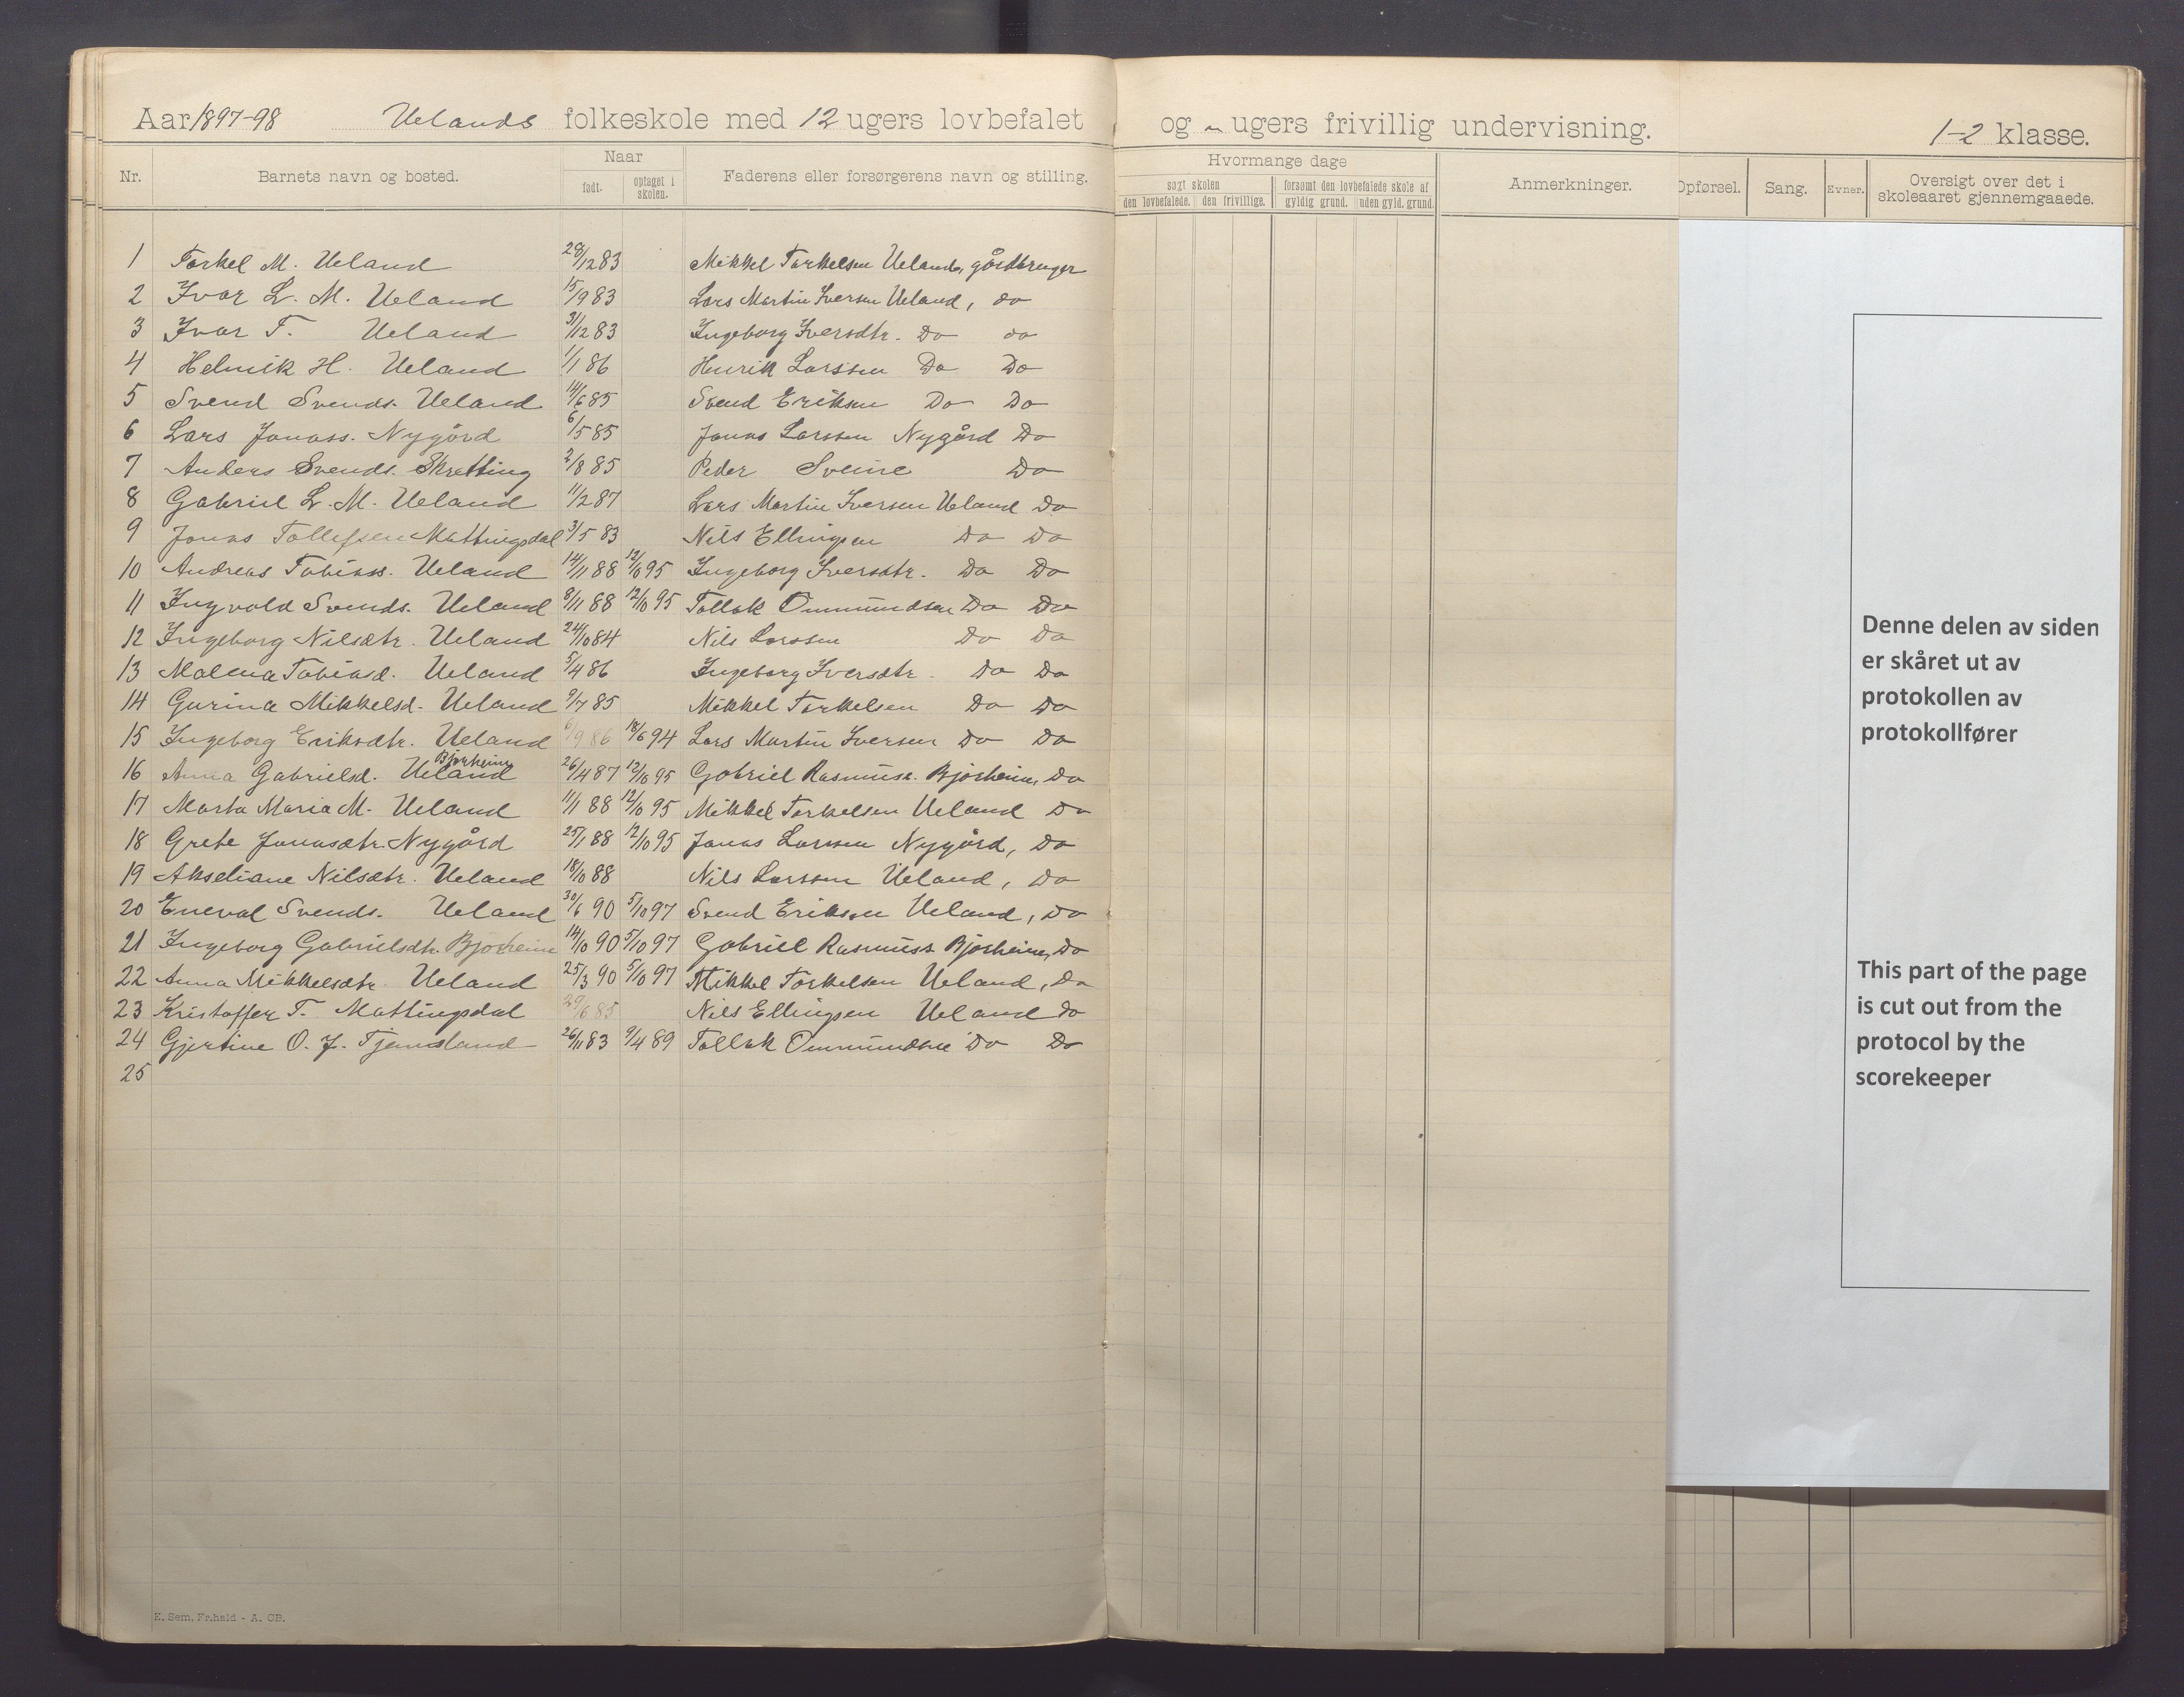 Aar 1897-98 Uelands folkeskole med 12 ugers lovbefalet og " ugers frivillig undervisning. 1-2 klasse.
Nr. Barnets navn og bosted. Naar født. optaget i skolen. Faderens eller forsørgerens navn og stilling. Hvormange dage søgt skolen den lovbefalede. den frivillige. forsømt den lovbefalede skole af gyldig grund. uden gyld. grund. Anmerkninger. Opførsel. Sang. Evner. Oversigt over det i skoleaaret gjennemgaaede.
1 Torkel M. Ueland 28/12 83 Mikkel Torkelsen Ueland, gårdbruger
2 Ivar L. M. Ueland 15/9 83 Lars Martin Iversen Ueland, do
3 Ivar T. Ueland 31/12 83 Ingeborg Iversdtr. Do do
4 Helmik H. Ueland 1/1 86 Henrik Larssen Do Do
5 Svend Svends. Ueland 14/6 85 Svend Eriksen Do Do
6 Lars Jonass. Nygård 6/5 85 Jonas Larssen Nygård Do
7 Anders Svends. Skretting 2/8 85 Peder Sveine Do
8 Gabriel L. M. Ueland 11/2 87 Lars Martin Iversen Ueland Do
9 Jonas Tollefsen Mattingsdal 3/5 83 Nils Ellingsen Do Do
10 Andreas Tobiass. Ueland 14/11 88 12/10 95 Ingeborg Iversdtr. Do Do
11 Ingvald Svends. Ueland 8/11 88 12/10 95 Tollak Ommundsen Do Do
12 Ingeborg Nilsdtr. Ueland 24/10 84 Nils Larssen Do Do
13 Malena Tobiasd. Ueland 5/4 86 Ingeborg Iversdtr. Do Do
14 Gurina Mikkelsd. Ueland 9/7 85 Mikkel Torkelsen Do Do
15 Ingeborg Eriksdtr. Ueland 6/9 86 18/6 94 Lars Martin Iversen Do Do
16 Anna Gabrielsd. Ueland Bjorheim 26/4 87 12/10 95 Gabriel Rasmuss. Bjorheim, Do
17 Marta Maria M. Ueland 11/1 88 12/10 95 Mikkel Torkelsen Ueland Do
18 Grete Jonasdtr. Nygård 25/1 88 12/10 95 Jonas Larssen Nygård, Do
19 Akseliane Nilsdtr. Ueland 18/10 88 Nils Larssen Ueland, Do
20 Eneval Svends. Ueland 30/6 90 5/10 97 Svend Eriksen Ueland, Do
21 Ingeborg Gabrielsdtr. Bjorheim 14/10 90 5/10 97 Gabriel Rasmuss Bjorheim, Do
22 Anna Mikkelsdtr Ueland 25/3 90 5/10 97 Mikkel Torkelsen Ueland, Do
23 Kristoffer T. Mattingsdal 29/6 85 Nils Ellingsen Ueland Do
24 Gjertine O. J. Tjemsland 26/11 83 9/4 89 Tollak Ommundsen Do Do
25
Denne delen av siden
er skåret ut av
protokollen av
protokollfører
This part of the page
is cut out from the
protocol by the
scorekeeper
E. Sem, Fr.hald - A. CB.